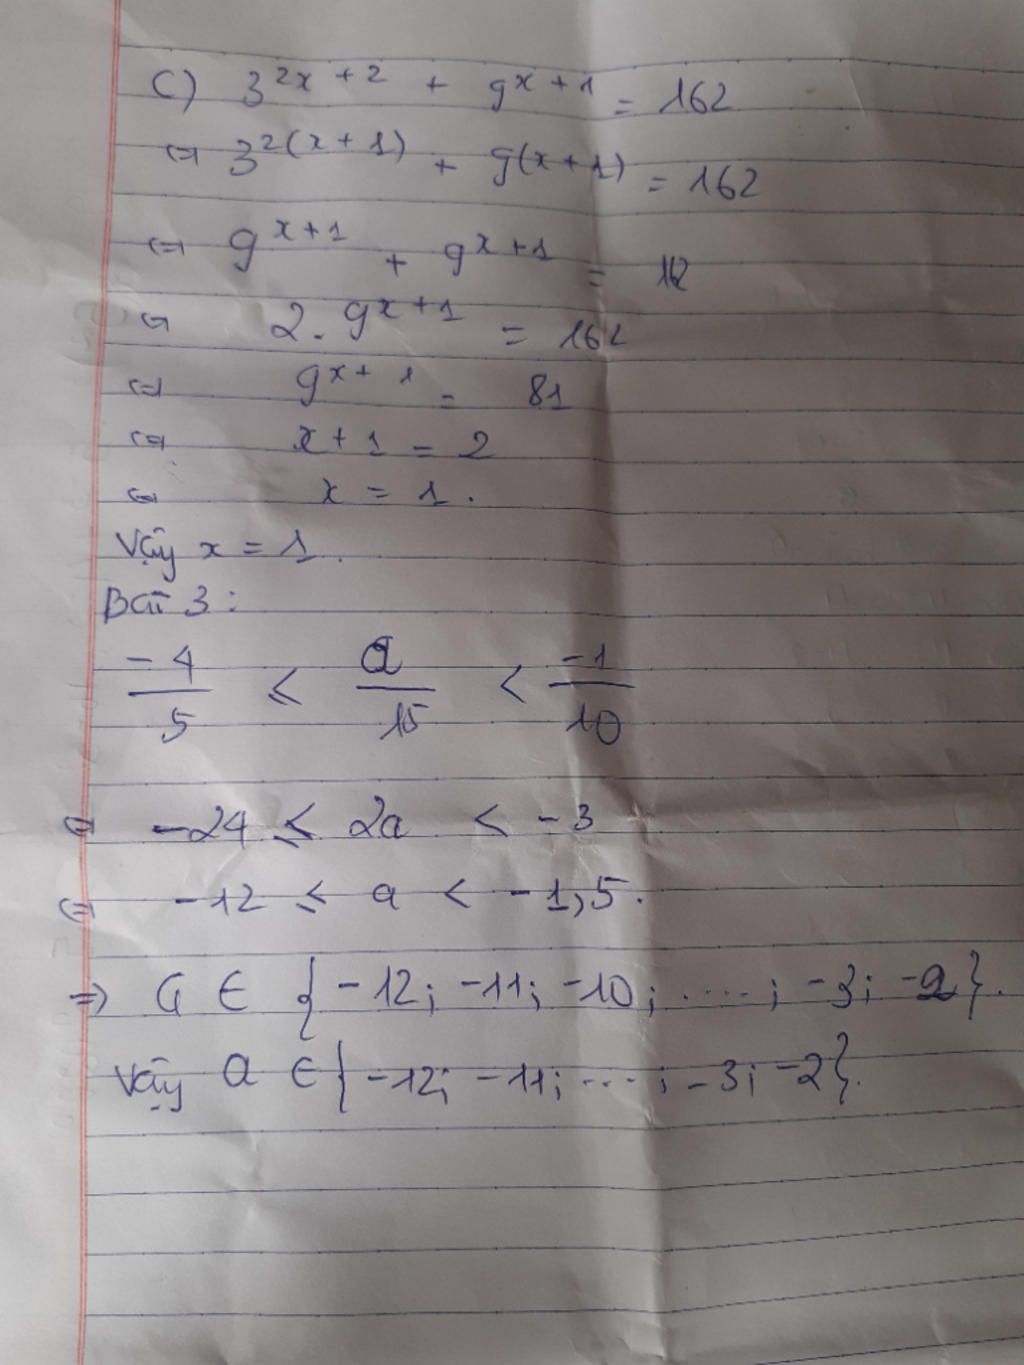 C) 3^{2x+2} + 9^{x+1} = 162
⇔ 3^{2(x+1)} + 9^{(x+1)} = 162
⇔ 9^{x+1} + 9^{x+1} = 162
⇔ 2. 9^{x+1} = 162
⇔ 9^{x+1} = 81
⇔ x + 1 = 2
⇔ x = 1.
Vậy x = 1.
Bài 3:
-4/5 ≤ a/15 < -1/10
⇔ -24 ≤ 2a < -3
⇔ -12 ≤ a < -1,5.
⇒ a ∈ {-12; -11; -10; ....; -3; -2}.
Vậy a ∈ {-12; -11; ....; -3; -2}.